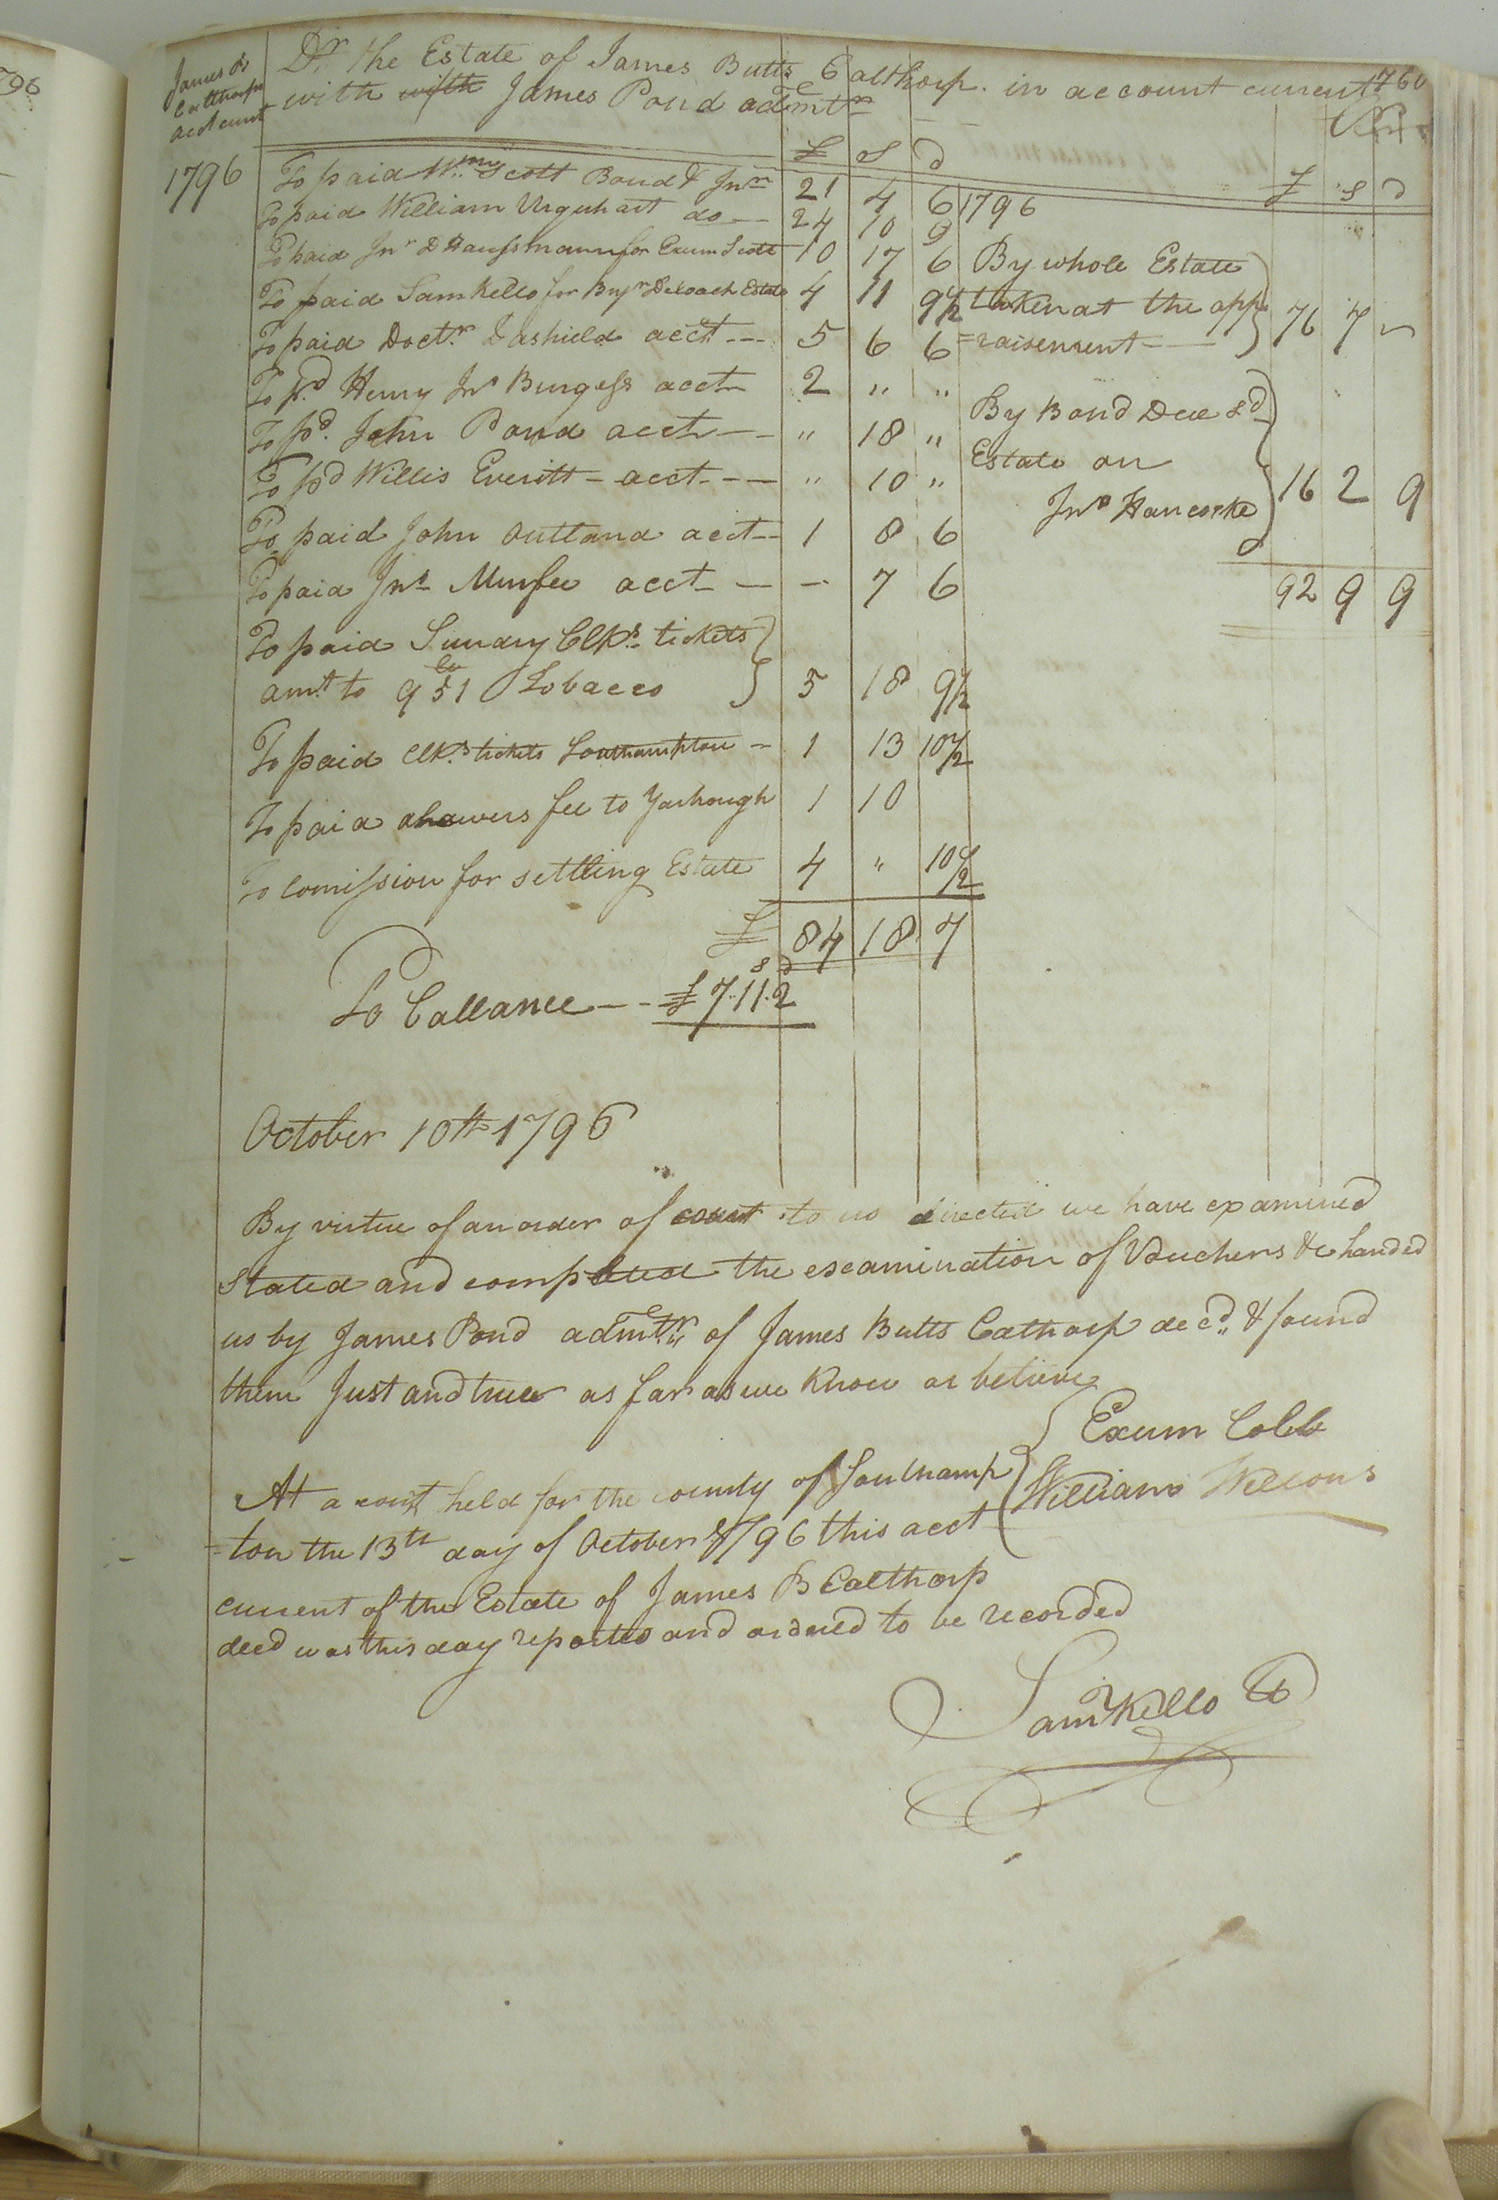 796
James Bs
Calthorps
acct curnt
Dr. the Estate of James Butts Calthorp. in account current 1760
with with James Pond admtr
£ S d
£ S d
1796 To paid Wm. Scott Bond & Inn 21 4 6 1796
To paid William Urquhart do — 24 10 9
To paid Jno D Haussmann for Exum Scott 10 17 6 By whole Estate
To paid Saml Kello for Benjn Deloach Estate 4 11 9½ taken at the app
To paid Doctr. Dashield acct --- 5 6 6 =raisement — 76 7 "
To pd Henry Jno Burgess acct 2 " "
By Bond Due sd
To pd. John Pond acct — " 18 "
Estate on
To pd Willis Everitt - acct --- " 10 "
Jno Hancocke 16 2 9
To paid John Outland acct-- 1 8 6
To paid Jno Murfee acct - — — 7 6
92 9 9
To paid Sundry Clks. tickets
amt to 951 lb Tobacco 5 18 9½
To paid Clks. tickets Southampton - 1 13 10½
To paid shewers fee to Yarhough 1 10
To Comission for settling Estate 4 " 10½
£ 84 18 7
s d
To Ballance -- £7.11.2
October 10th 1796
By virtue of an order of court to us directed we have examined
Stated and completed the examination of Vouchers &c handed
us by James Pond admtr. of James Butts Calthorp decd. & found
them Just and true as far as we know or believe
Exum Cobb
At a court held for the county of Southamp
William Wellons
=ton the 13th day of October 1796 this acct
current of the Estate of James B Calthorp
decd was this day reported and ordered to be recorded
Saml Kello Cl